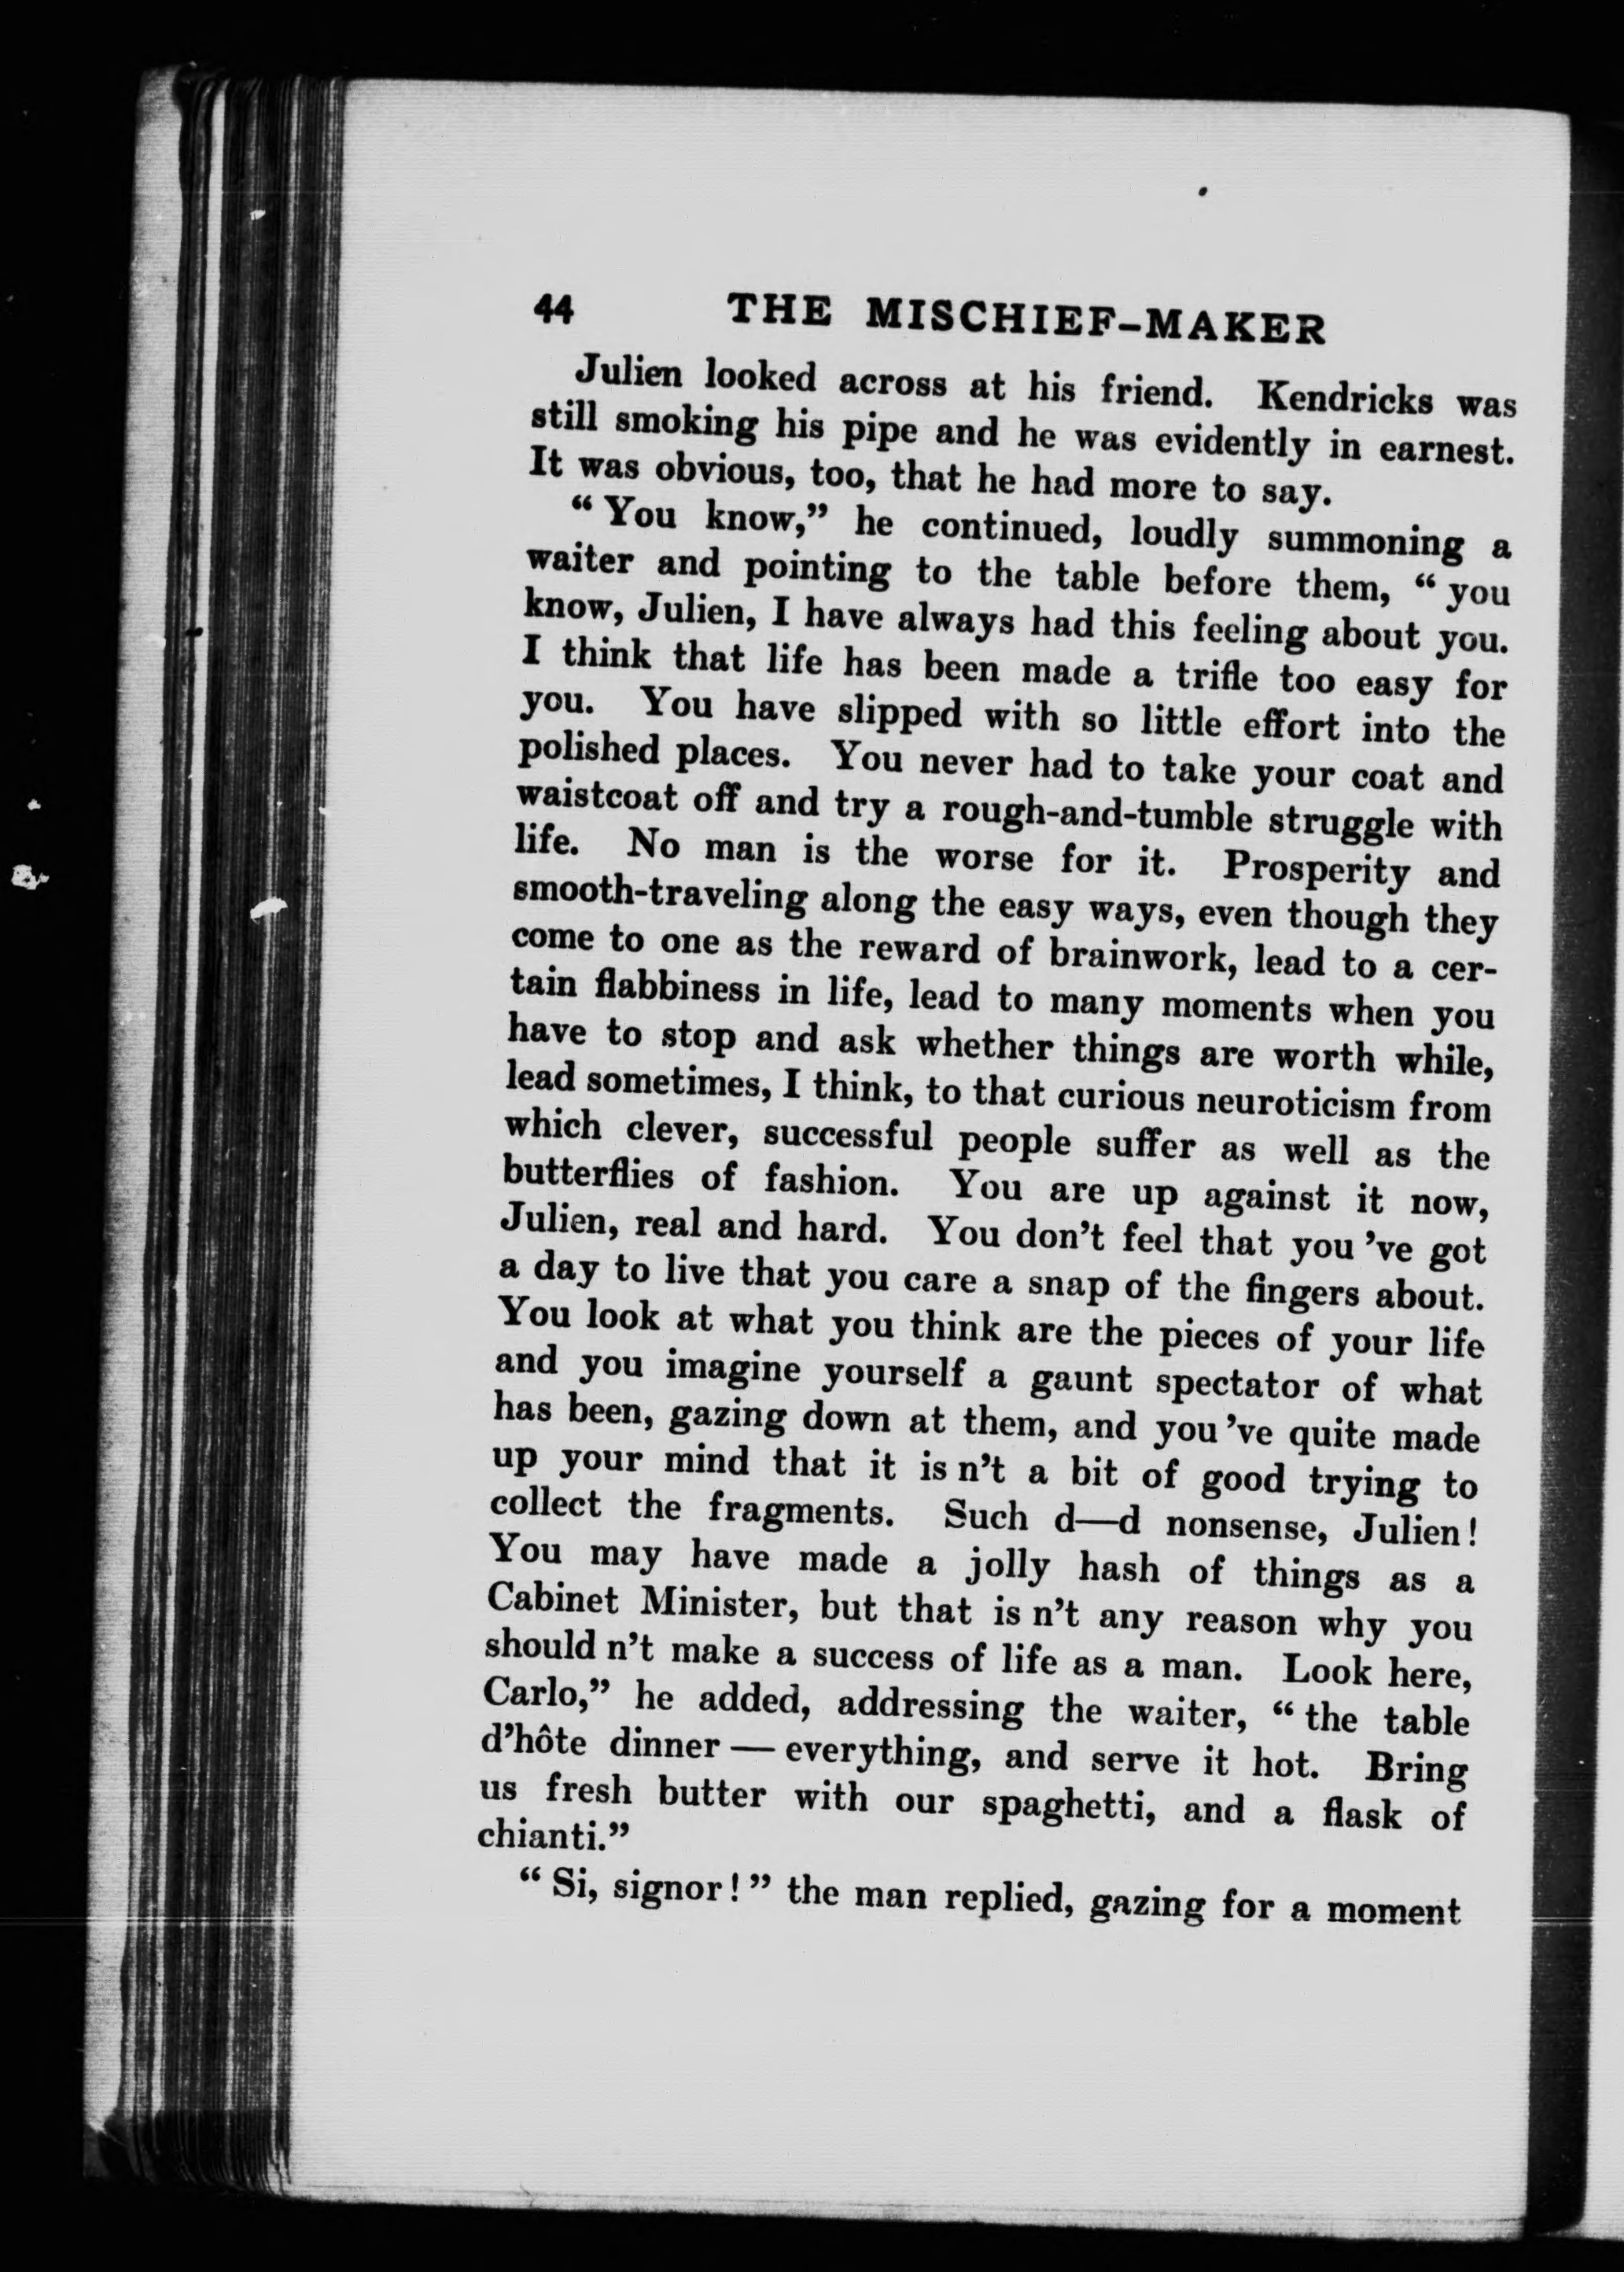 44 THE MISCHIEF-MAKER
Julien looked across at his friend. Kendricks was
still smoking his pipe and he was evidently in earnest.
It was obvious, too, that he had more to say.
“You know,” he continued, loudly summoning a
waiter and pointing to the table before them, “you
know, Julien, I have always had this feeling about you.
I think that life has been made a trifle too easy for
you. You have slipped with so little effort into the
polished places. You never had to take your coat and
waistcoat off and try a rough-and-tumble struggle with
life. No man is the worse for it. Prosperity and
smooth-traveling along the easy ways, even though they
come to one as the reward of brainwork, lead to a cer-
tain flabbiness in life, lead to many moments when you
have to stop and ask whether things are worth while,
lead sometimes, I think, to that curious neuroticism from
which clever, successful people suffer as well as the
butterflies of fashion. You are up against it now,
Julien, real and hard. You don’t feel that you ’ve got
a day to live that you care a snap of the fingers about.
You look at what you think are the pieces of your life
and you imagine yourself a gaunt spectator of what
has been, gazing down at them, and you ’ve quite made
up your mind that it is n’t a bit of good trying to
collect the fragments. Such d—d nonsense, Julien!
You may have made a jolly hash of things as a
Cabinet Minister, but that is n’t any reason why you
should n’t make a success of life as a man. Look here,
Carlo,” he added, addressing the waiter, “the table
d’hôte dinner — everything, and serve it hot. Bring
us fresh butter with our spaghetti, and a flask of
chianti.”
“Si, signor!” the man replied, gazing for a moment